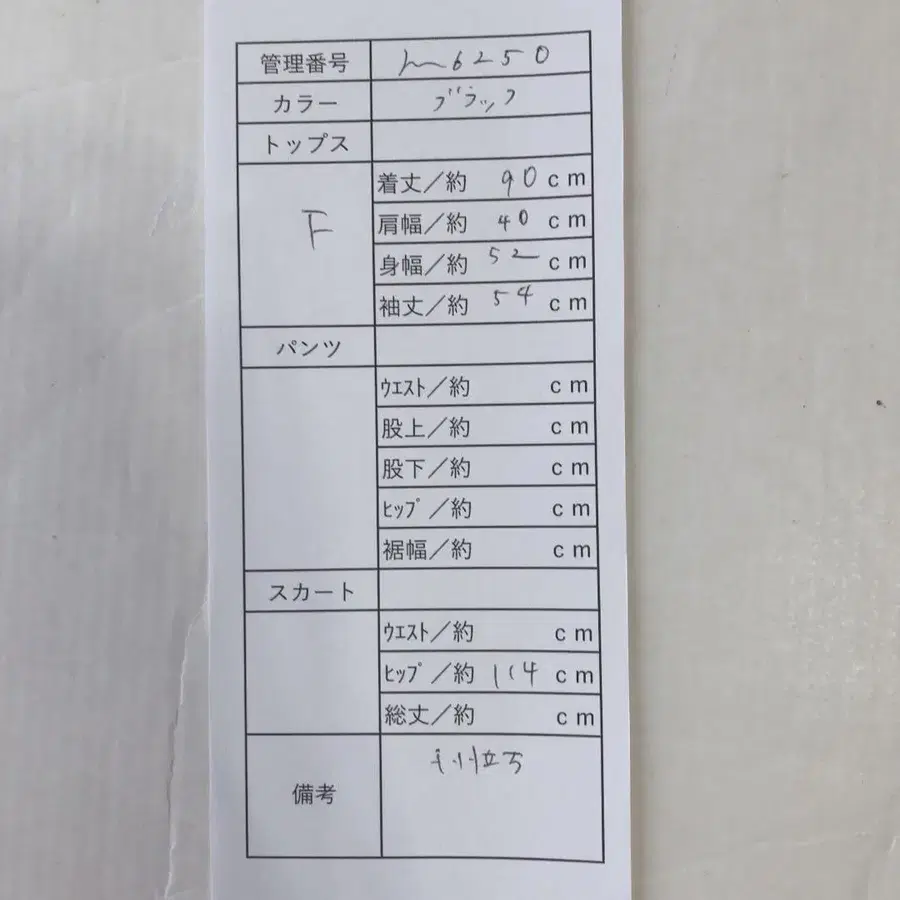 管理番号 m6250
カラー ブラック
トップス
F
着丈／約 90 cm
肩幅／約 40 cm
身幅／約 52 cm
袖丈／約 54 cm
パンツ
ウエスト／約 cm
股上／約 cm
股下／約 cm
ヒップ／約 cm
裾幅／約 cm
スカート
ウエスト／約 cm
ヒップ／約 114 cm
総丈／約 cm
備考